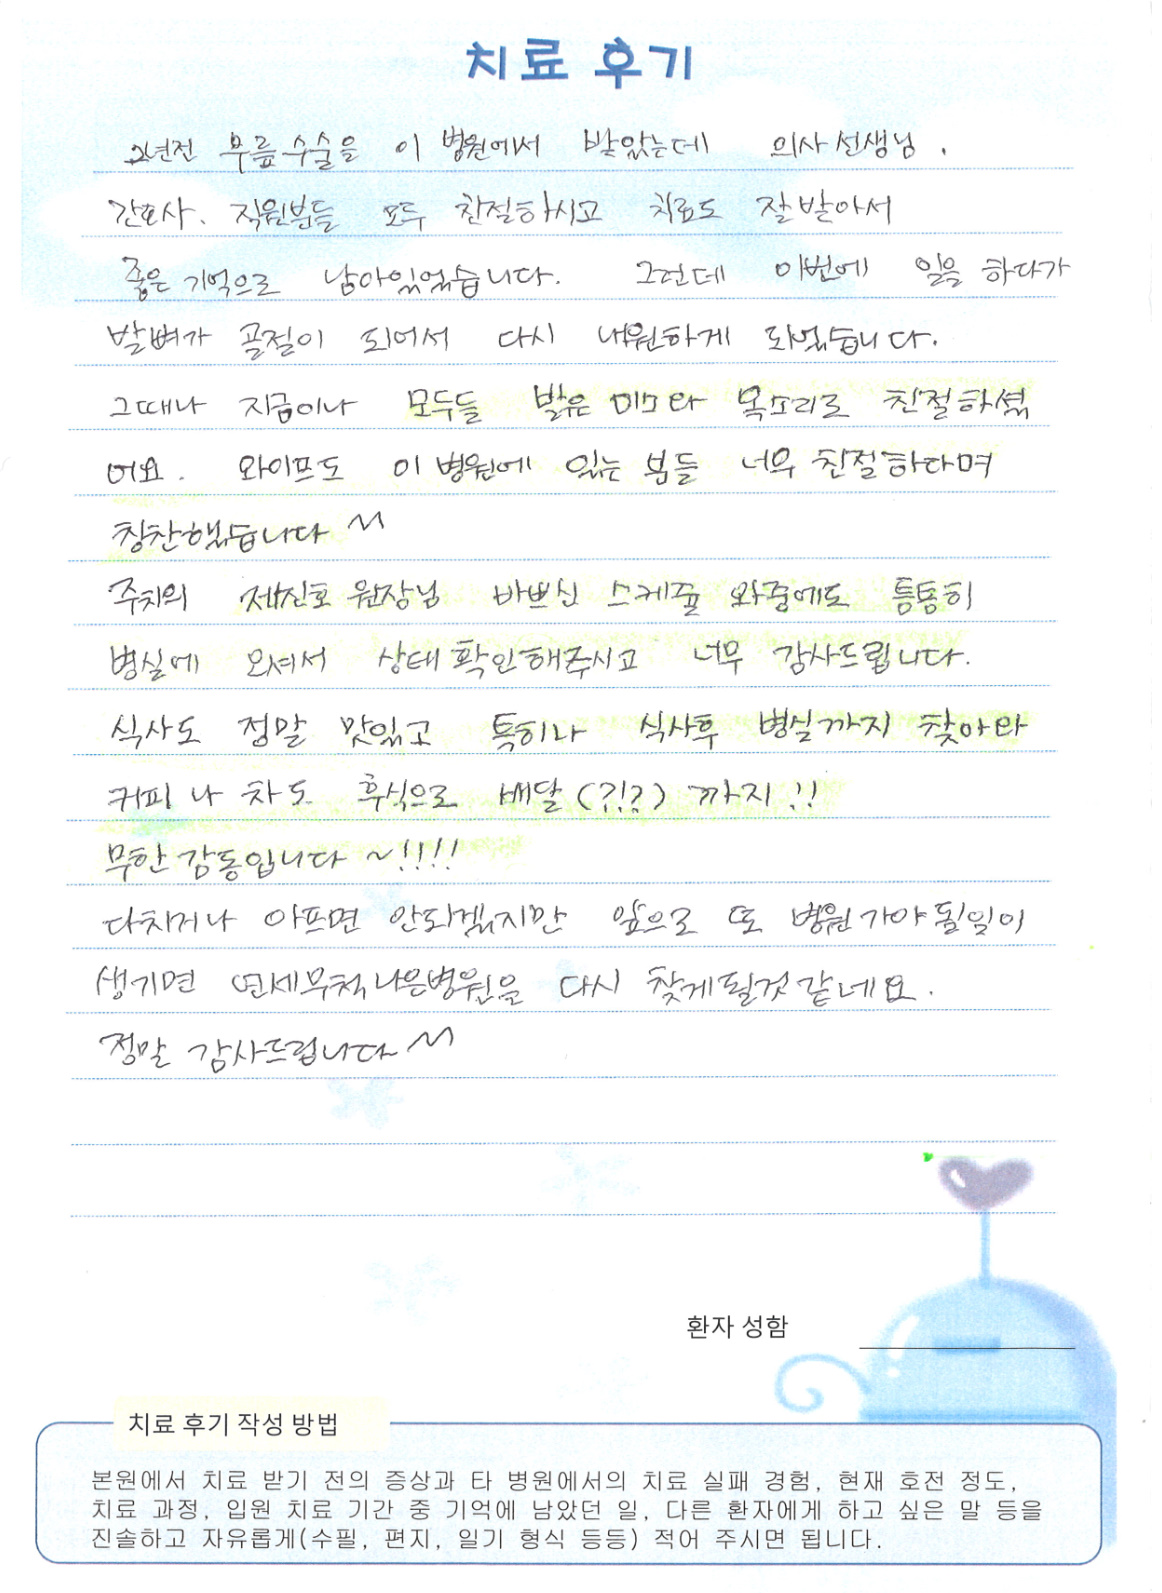 치료 후기
2년전 무릎수술을 이 병원에서 받았는데 의사선생님,
간호사, 직원분들 모두 친절하시고 치료도 잘받아서
좋은 기억으로 남아있었습니다. 그런데 이번에 일을 하다가
발뼈가 골절이 되어서 다시 내원하게 되었습니다.
그때나 지금이나 모두들 밝은 미소와 목소리로 친절하셨
어요. 와이프도 이 병원에 있는 분들 너무 친절하다며
칭찬했습니다 ^^
주치의 제진호 원장님 바쁘신 스케쥴 와중에도 틈틈히
병실에 오셔서 상태 확인해주시고 너무 감사드립니다.
식사도 정말 맛있고 특히나 식사후 병실까지 찾아와
커피나 차도 후식으로 배달(?!?) 까지!!
무한감동입니다 ~!!!!
다치거나 아프면 안되겠지만 앞으로 또 병원가야될일이
생기면 연세무척나은병원을 다시 찾게될것 같네요.
정말 감사드립니다 ^^
환자 성함
치료 후기 작성 방법
본원에서 치료 받기 전의 증상과 타 병원에서의 치료 실패 경험, 현재 호전 정도,
치료 과정, 입원 치료 기간 중 기억에 남았던 일, 다른 환자에게 하고 싶은 말 등을
진솔하고 자유롭게(수필, 편지, 일기 형식 등등) 적어 주시면 됩니다.